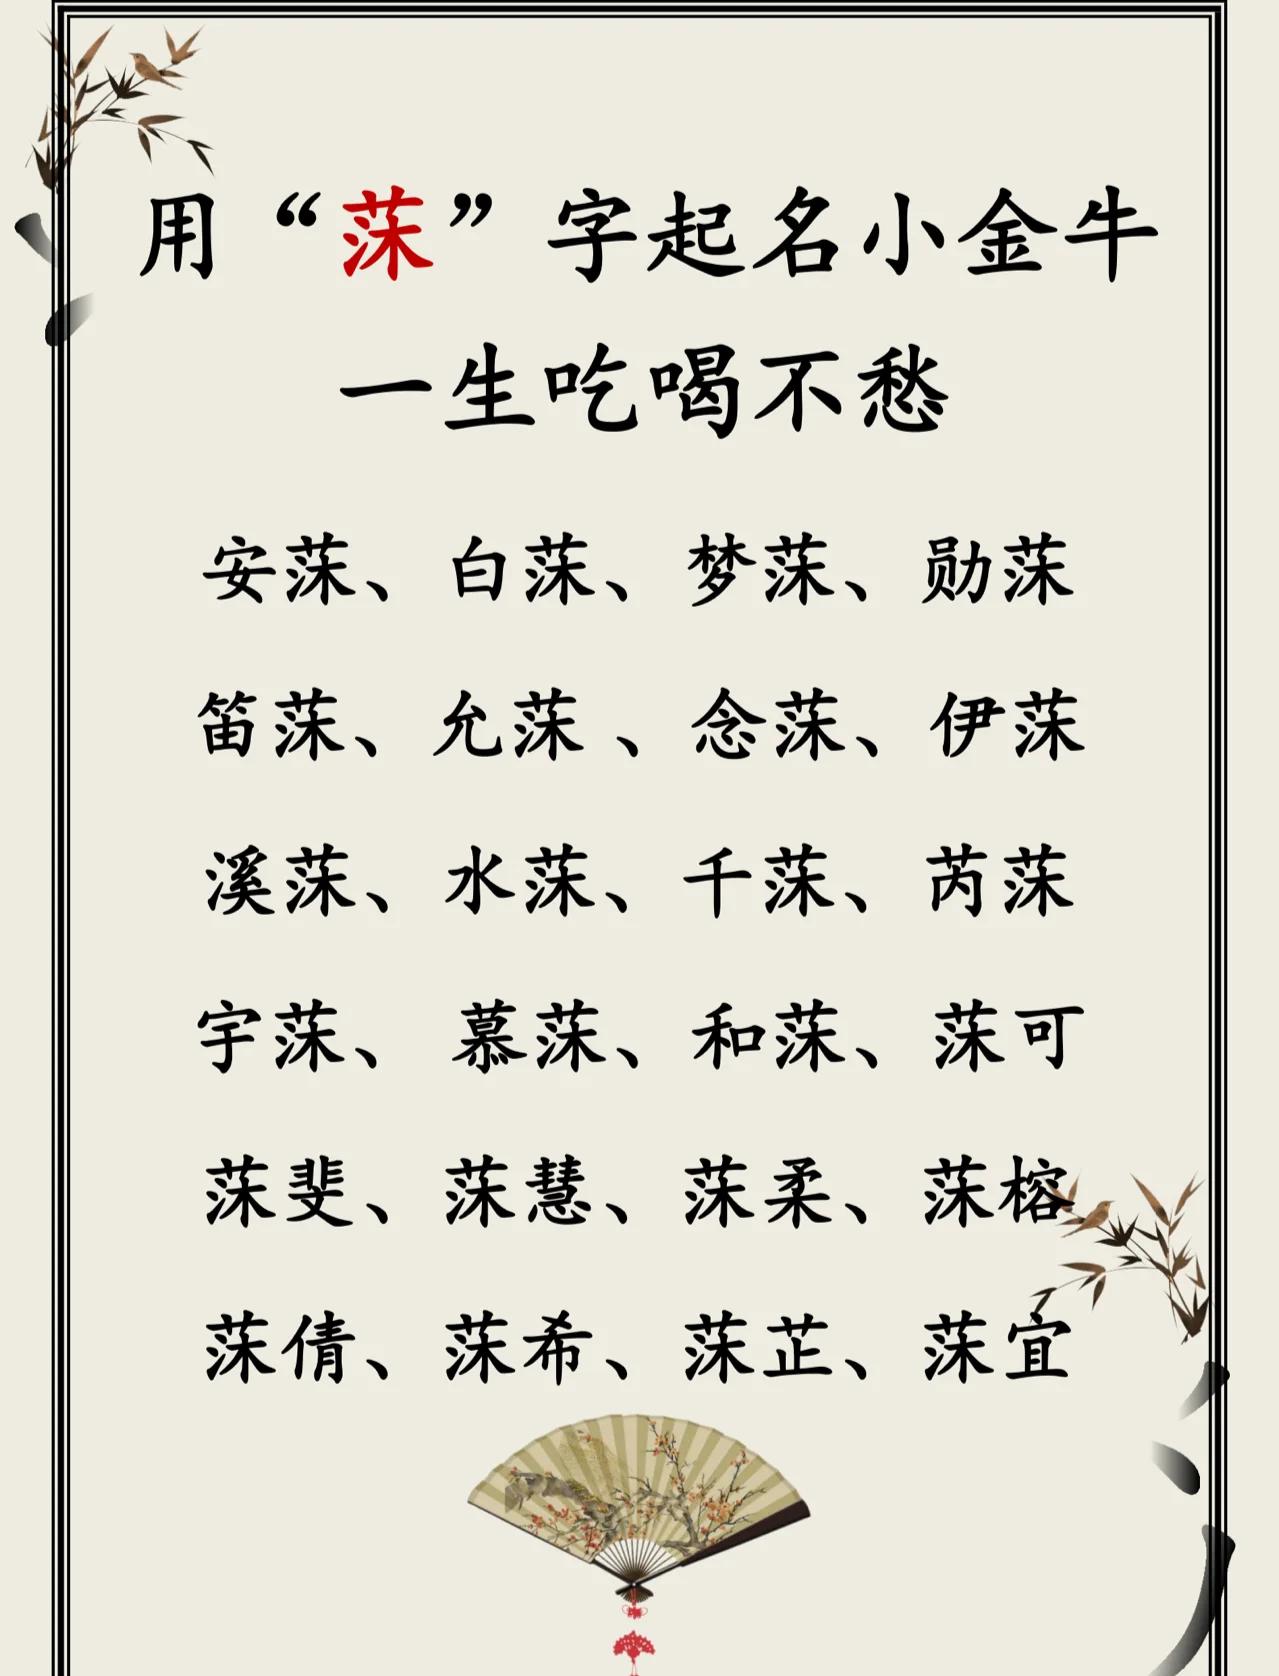 用“莯”字起名小金牛
一生吃喝不愁
安莯、白莯、梦莯、勋莯
笛莯、允莯 、念莯、伊莯
溪莯、水莯、千莯、芮莯
宇莯、 慕莯、和莯、莯可
莯斐、莯慧、莯柔、莯榕
莯倩、莯希、莯芷、莯宜